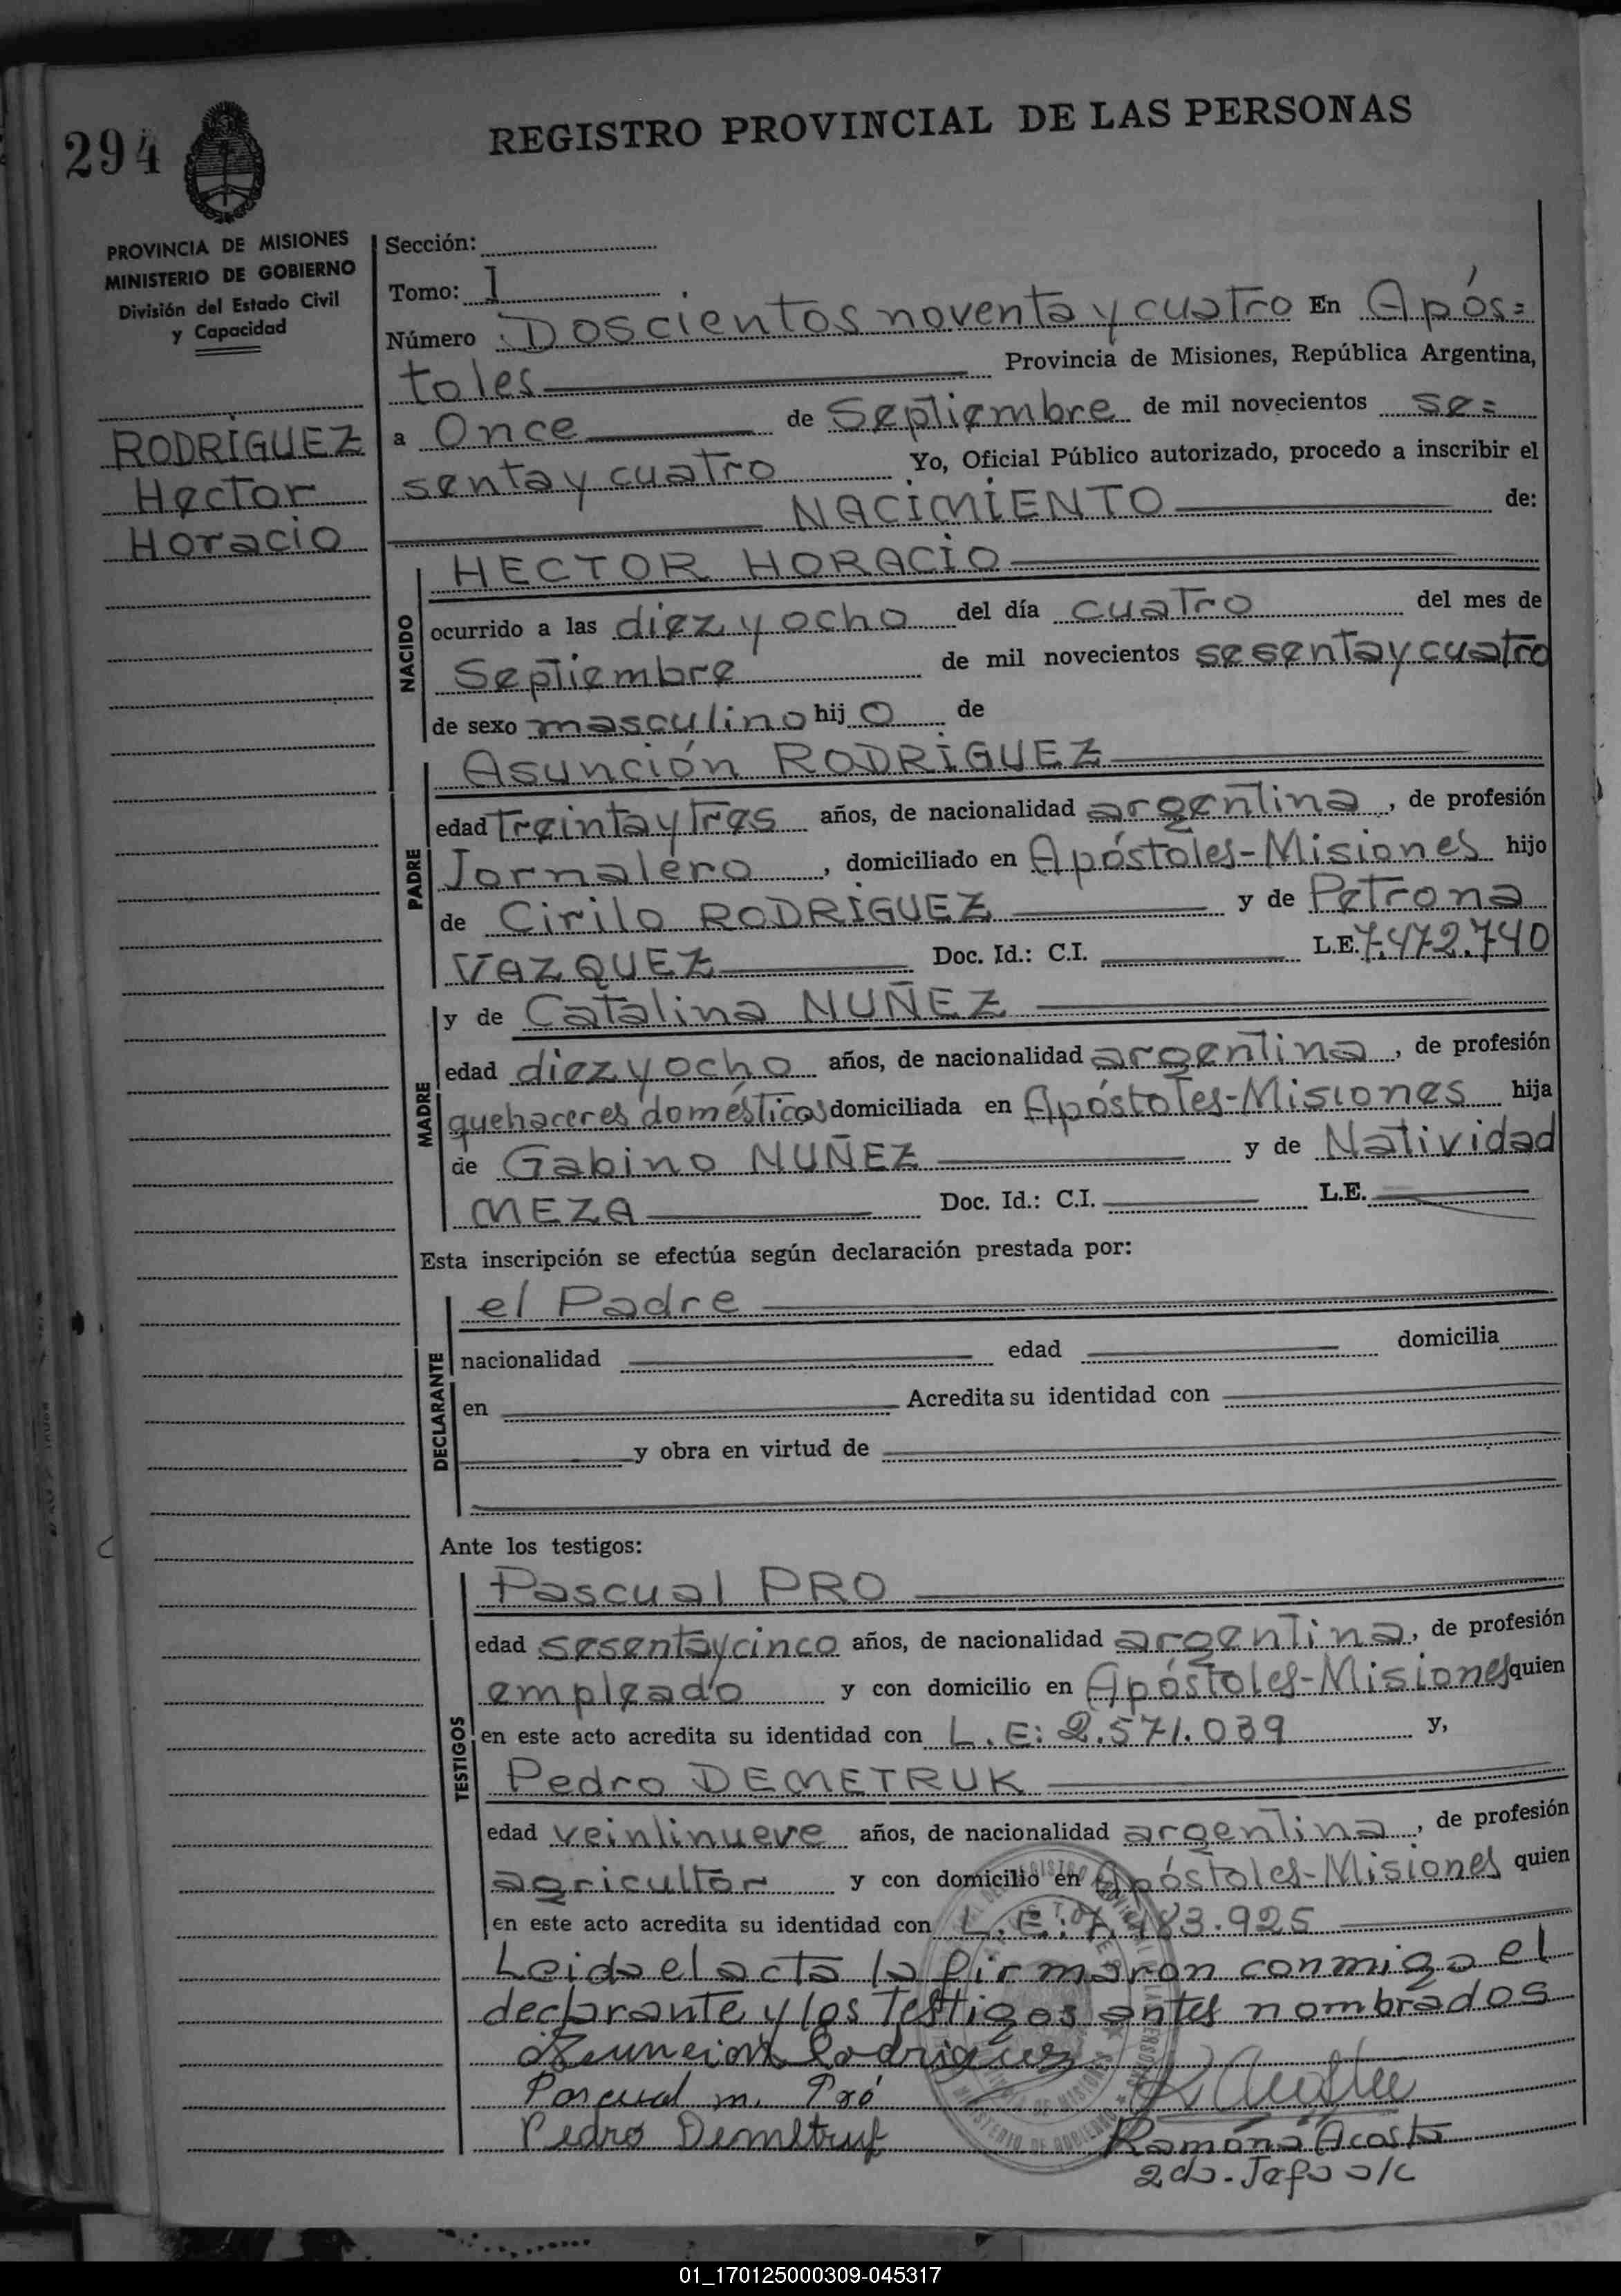 REGISTRO PROVINCIAL DE LAS PERSONAS
294
PROVINCIA DE MISIONES
MINISTERIO DE GOBIERNO
División del Estado Civil
y Capacidad
RODRIGUEZ
Hector
Horacio
Sección:
Tomo: I
Número Doscientos noventa y cuatro En Após=
toles Provincia de Misiones, República Argentina,
a Once de Septiembre de mil novecientos se=
senta y cuatro Yo, Oficial Público autorizado, procedo a inscribir el
NACIMIENTO de:
NACIDO
HECTOR HORACIO
ocurrido a las diez y ocho del día cuatro del mes de
Septiembre de mil novecientos sesenta y cuatro
de sexo masculino hijo de
PADRE
Asunción RODRIGUEZ
edad treinta y tres años, de nacionalidad argentina, de profesión
Jornalero, domiciliado en Apóstoles-Misiones hijo
de Cirilo RODRIGUEZ y de Petrona
VAZQUEZ Doc. Id.: C.I. L.E. 7.472.740
MADRE
y de Catalina NUÑEZ
edad diez y ocho años, de nacionalidad argentina, de profesión
quehaceres domésticos domiciliada en Apóstoles-Misiones hija
de Gabino NUÑEZ y de Natividad
MEZA Doc. Id.: C.I. L.E.
Esta inscripción se efectúa según declaración prestada por:
DECLARANTE
el Padre
nacionalidad edad domicilia
en Acredita su identidad con
y obra en virtud de
Ante los testigos:
TESTIGOS
Pascual PRO
edad sesenta y cinco años, de nacionalidad argentina, de profesión
empleado y con domicilio en Apóstoles-Misiones quien
en este acto acredita su identidad con L.E: 2.571.039 y,
Pedro DEMETRUK
edad veintinueve años, de nacionalidad argentina, de profesión
agricultor y con domicilio en Apóstoles-Misiones quien
en este acto acredita su identidad con L.E.: 7.483.925
Leida el acta la firmaron conmigo el
declarante y los testigos antes nombrados
Asuncion Rodriguez
Pascual m. Pró
Pedro Demetruk
Ramona Acosta
2do. Jefe a/c
01_170125000309-045317